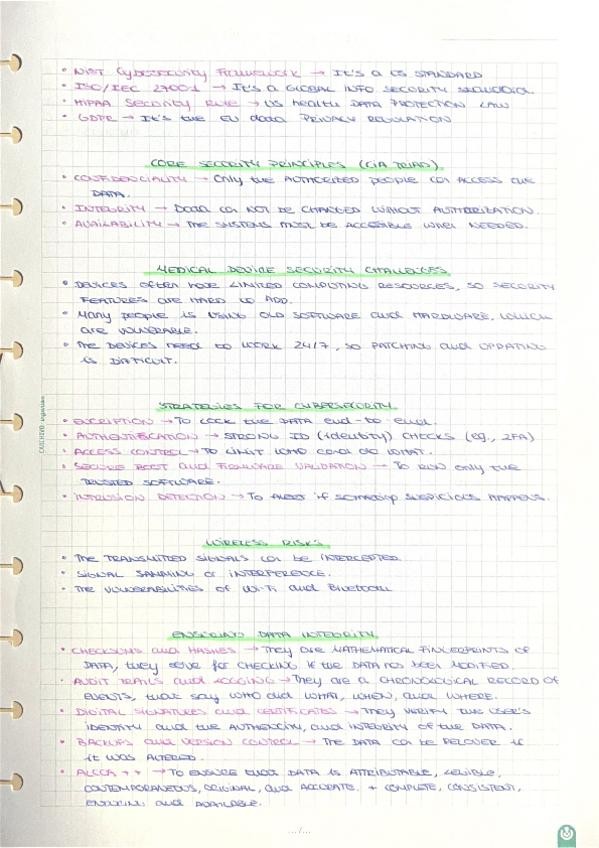 • NIST Cybersecurity Framework → It's a US STANDARD
• ISO/IEC 27001 → It's a GLOBAL INFO SECURITY STANDARD
• HIPAA Security Rule → US Health DATA PROTECTION LAW
• GDPR → It's the EU data PRIVACY REGULATION
CORE SECURITY PRINCIPLES (CIA TRIAD).
• CONFIDENCIALITY → Only the AUTHORIZED people can ACCESS the
DATA.
• INTEGRITY → Data can NOT BE CHANGED WITHOUT AUTHORIZATION.
• AVAILABILITY → The SYSTEMS MUST BE ACCESIBLE WHEN NEEDED.
MEDICAL DEVICE SECURITY CHALLENGES
• DEVICES often have LIMITED COMPUTING RESOURCES, SO SECURITY
FEATURES are HARD to ADD.
• Many people is using OLD SOFTWARE and HARDWARE, WHICH
are VULNERABLE.
• The DEVICES NEED to WORK 24/7, SO PATCHING and UPDATING
is DIFFICULT.
STRATEGIES FOR CYBERSECURITY
• ENCRIPTION → To LOCK the DATA end-to-end.
• AUTHENTIFICATION → STRONG ID (identity) CHECKS (eg., 2FA)
• ACCESS CONTROL → To LIMIT WHO can do WHAT.
• SECURE BOOT and FIRMWARE VALIDATION → To RUN only the
TRUSTED SOFTWARE.
• INTRUSION DETECTION → To Alert if something SUSPICIOUS HAPPENS.
WIRELESS RISKS
• The TRANSMITTED SIGNALS can be INTERCEPTED.
• SIGNAL or INTERFERENCE.
• The VULNERABILITIES of Wi-Fi and Bluetooth
ENSURING DATA INTEGRITY
• CHECKSUMS and HASHES → They are MATHEMATICAL FINGERPRINTS OF
DATA, they serve for CHECKING if the DATA has been MODIFIED.
• AUDIT TRAILS and LOGGING → They are a CHRONOLOGICAL RECORD of
EVENTS, that say WHO and WHAT, WHEN, and WHERE.
• DIGITAL SIGNATURES and CERTIFICATES → They VERIFY the USER'S
IDENTITY and the AUTHENCITY, and INTEGRITY of the DATA.
• BACKUPS and VERSION CONTROL → The DATA can be if
it WAS ALTERED.
• ALCOA++ → To ENSURE that DATA is ATTRIBUTABLE, LEGIBLE,
CONTEMPORANEOUS, ORIGINAL, and ACCURATE. + COMPLETE, CONSISTENT,
ENDURING and AVAILABLE.
.../...